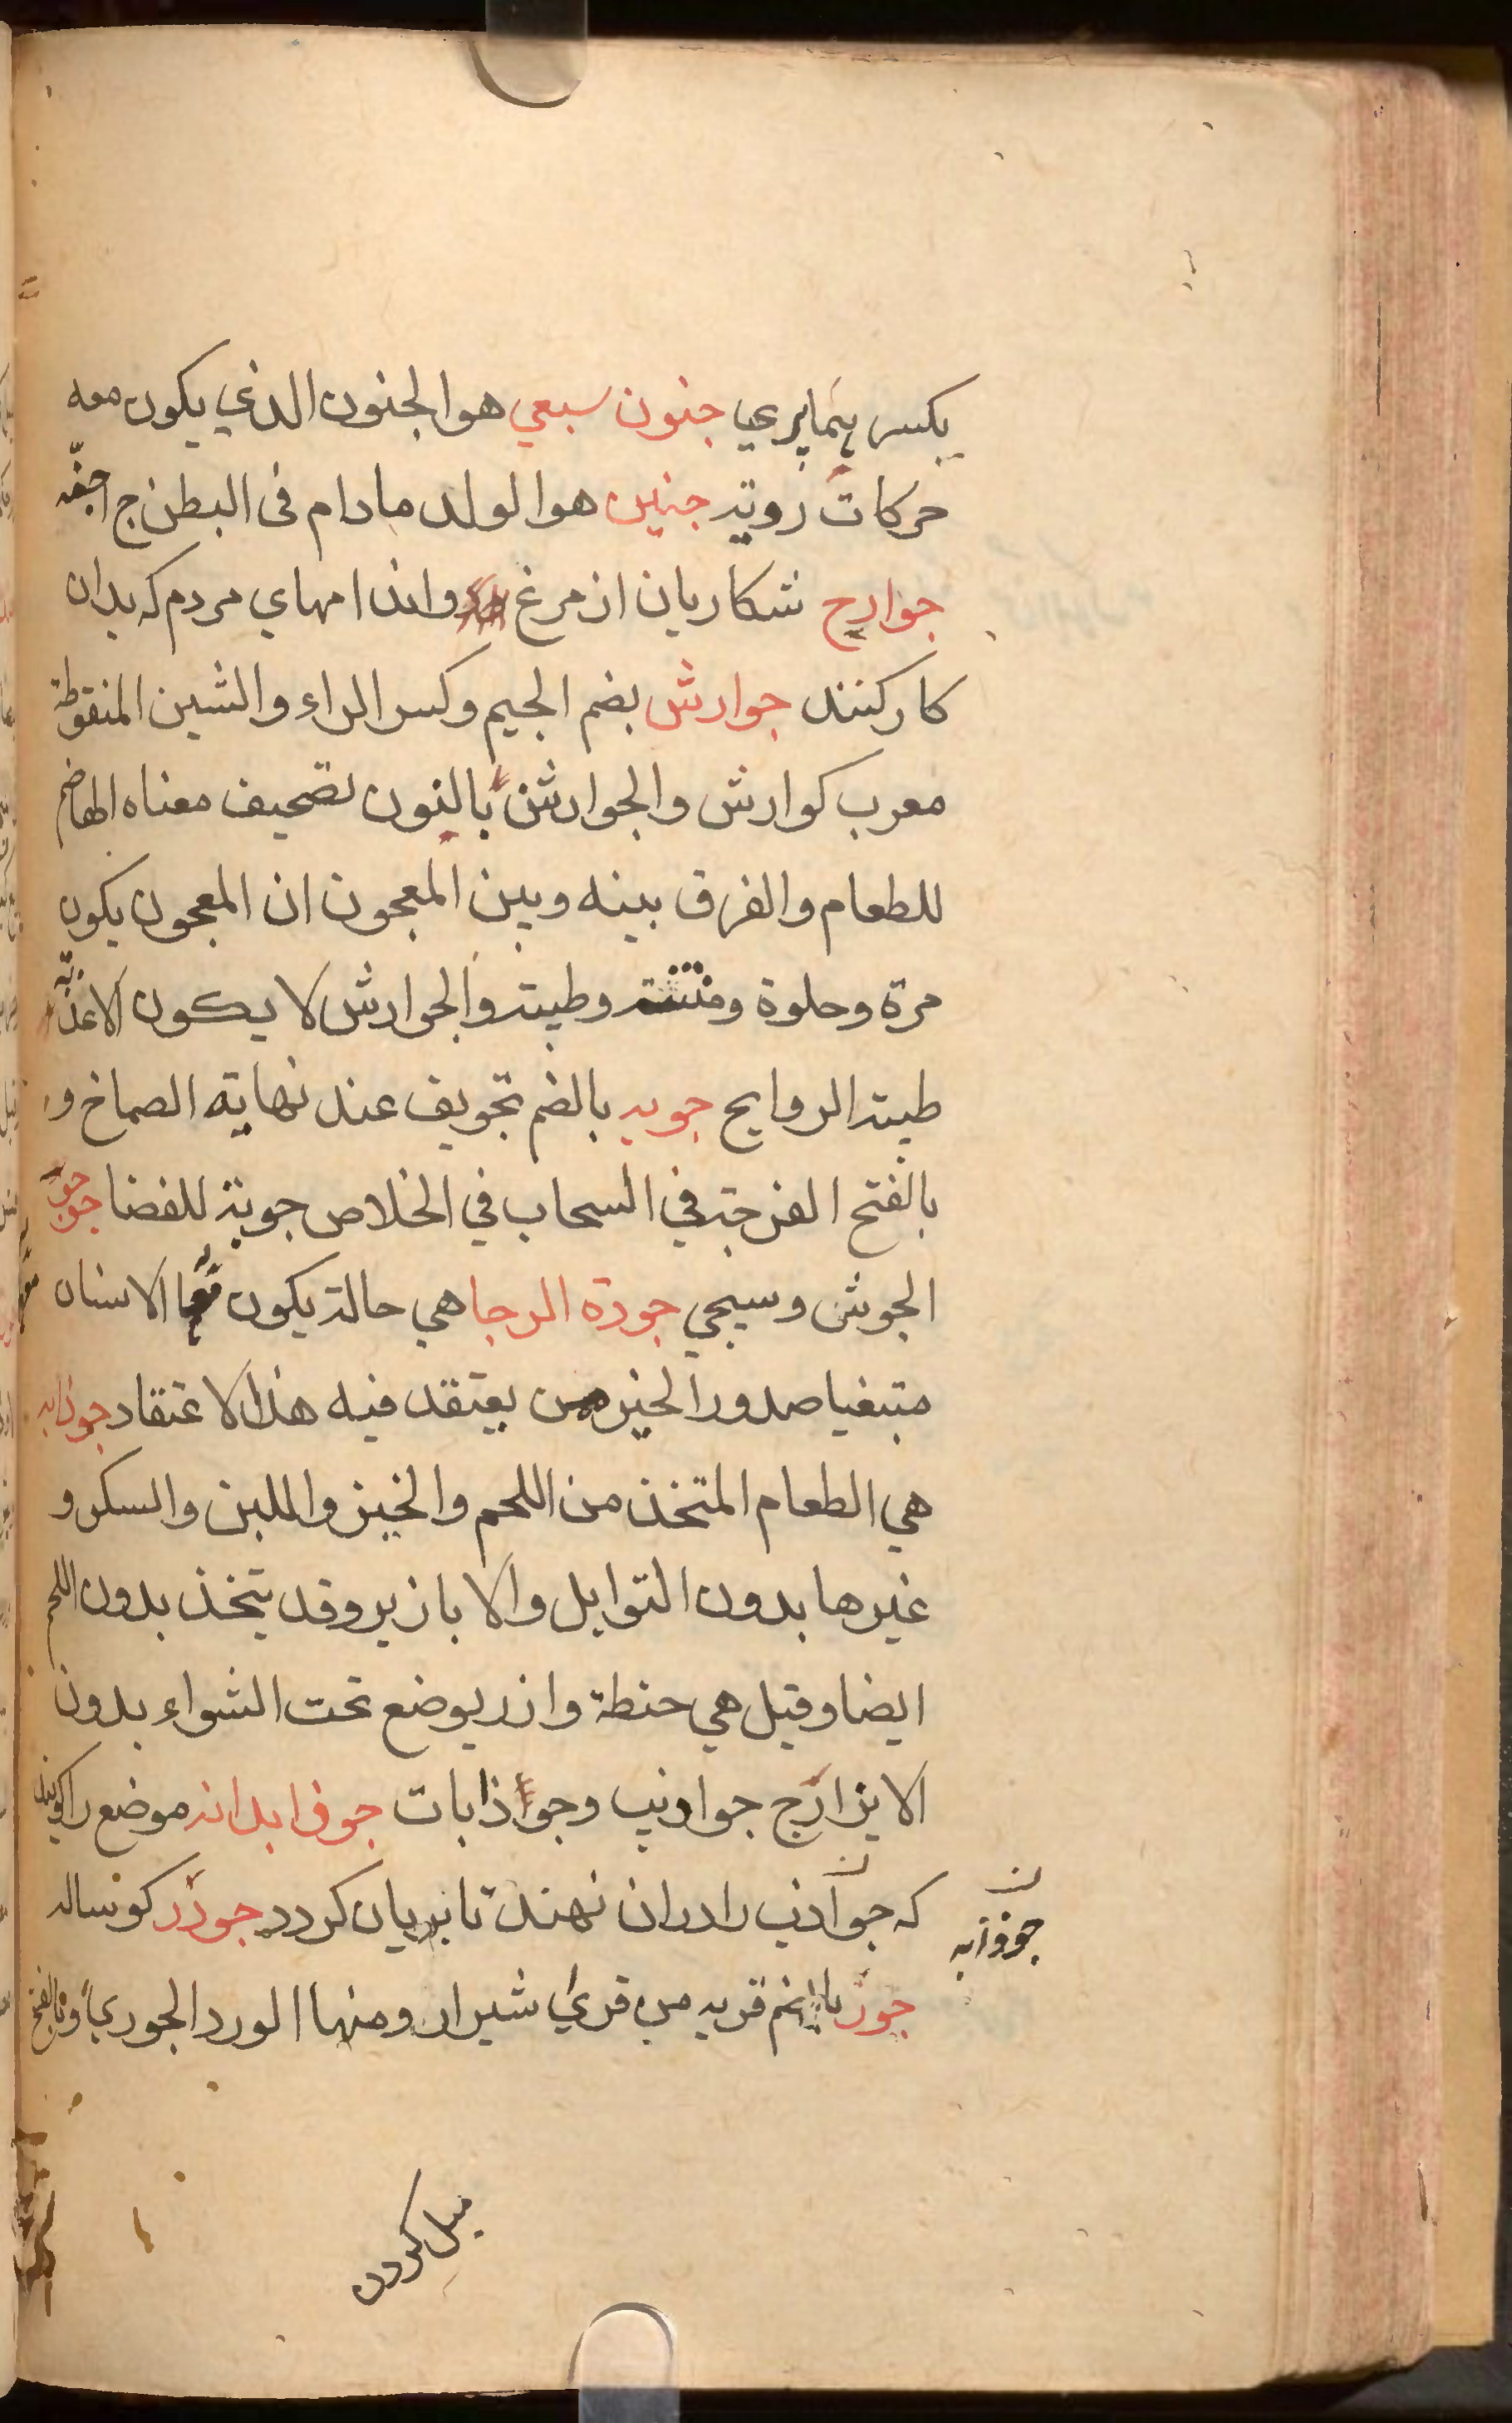 يكسر بهما يرى جنون سبعي هو الجنون الذي يكون معه
حركات رديه جنين هو الولد مادام فى البطن ج اجنّه
جوارح شكاريان از مرغ واندامهاي مردم كه بدان
كار كنند جوارش بضم الجيم وكسر الراء والشين المنقوطة
معرب كوارش والجوارشن بالنون تصحيف معناه الهاضم
للطعام والفرق بينه وبين المعجون ان المعجون يكون
مرة وحلوة ومنتنة وطيبة والجوارش لا يكون الا عذبة
طيبة الروايح جوبه بالضم تجويف عند نهاية الصماخ و
بالفتح الفرجة في السحاب في الخلاص جوبة للفضا
الجوش وسيجي جودة الرجا هي حالة يكون معها الانسان
متبغيا صدور الخير من يعتقد فيه هذا الاعتقاد جوذابه
هي الطعام المتخذ من اللحم والخبز واللبن والسكر و
غيرها بدون التوابل والابازير وقد يتخذ بدون اللحم
ايضا وقيل هي حنطة وارز يوضع تحت الشواء بدون
الابزار ج جواذيب وجواذابات جوذابدانه موضع راكويند
كه جواذب رادران نهند تا بريان كردد جوذر كوساله
جور بالضم قريه من قرى شيراز ومنها الورد الجوري وبالفتح
جوذابه
ميل كردن